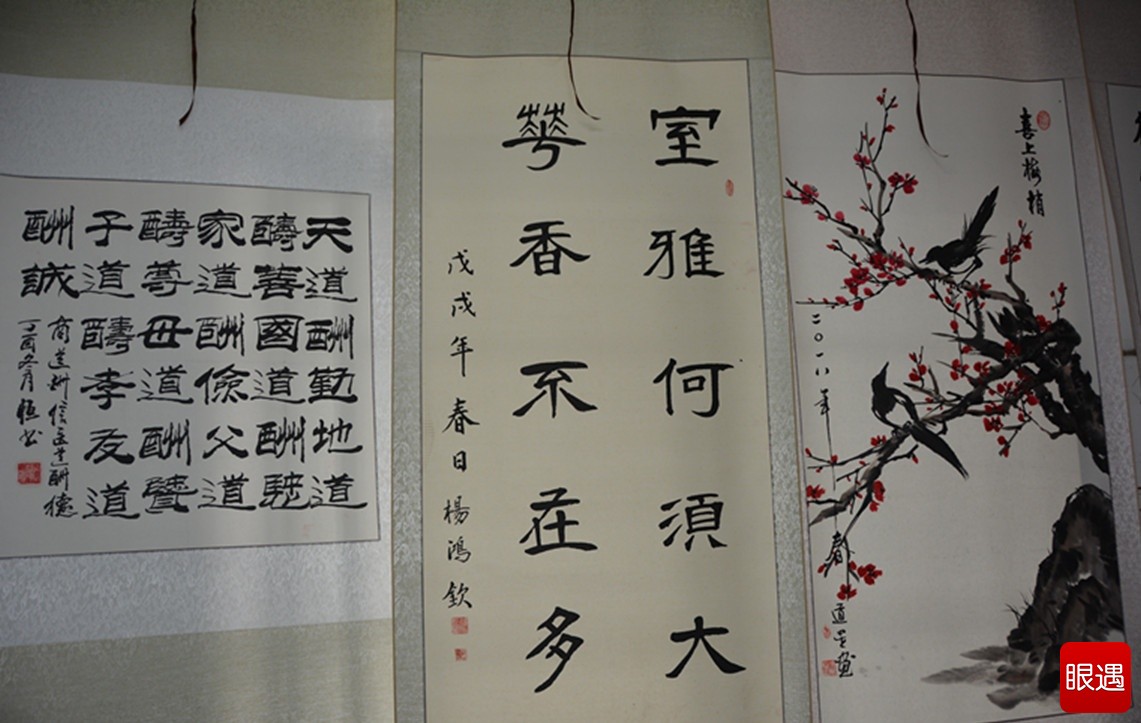 天道酬勤地道
醻善國道酬
家道酬儉父道
醻尊母道酬
子道醻孝友道
酬誠
商道酬信道酬德
丁酉冬月書
室雅何須大
華香不在多
戊戌年春日楊鴻欽
喜上梅梢
二〇一八年春道畫
眼遇